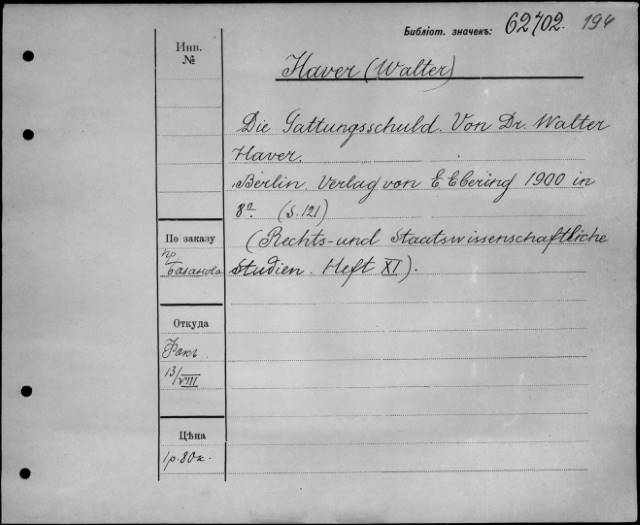 Библіот. значекъ: 62702. 194
Инв.
№
Haver (Walter)
Die Gattungsschuld. Von Dr. Walter
Haver.
Berlin. Verlag von E. Ebering 1900 in
8º. (S. 121)
(Rechts- und Staatswissenschaftliche
Studien. Heft XI).
По заказу
пр.
Базанова
Откуда
13/VIII
Цѣна
1р. 80к.